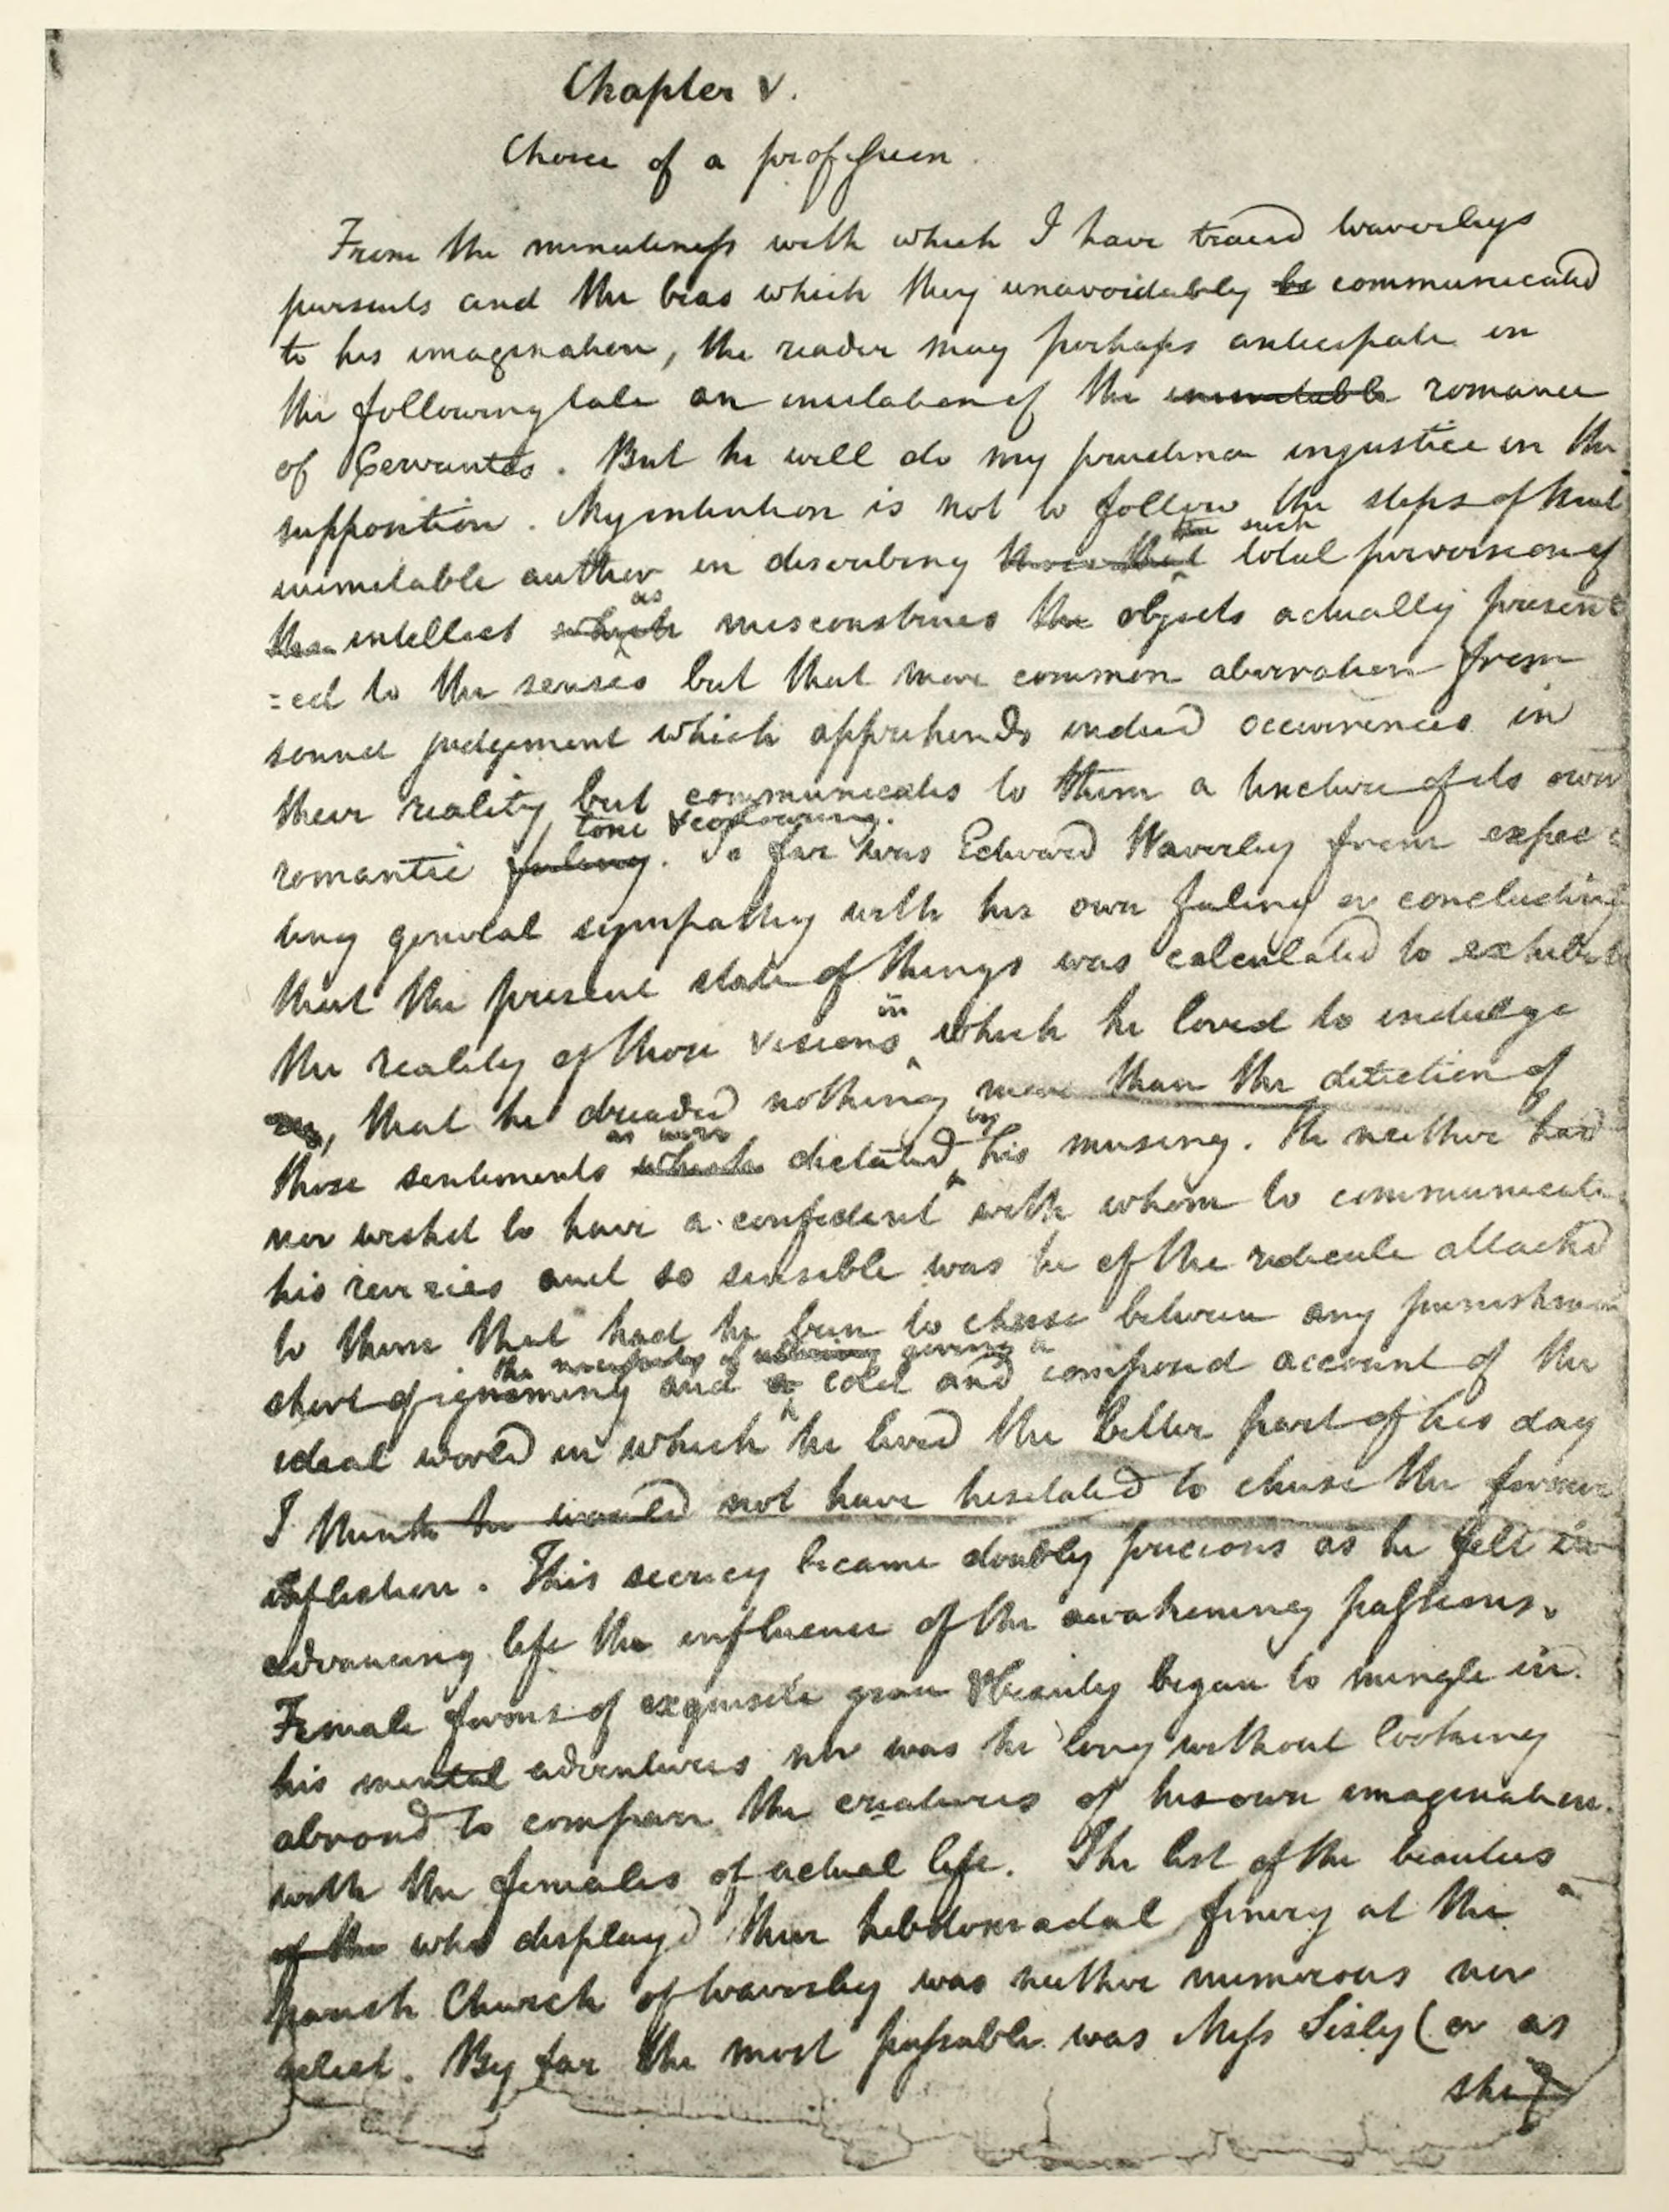 Chapter V.
Choice of a profession.
From the minuteness with which I have traced Waverleys
pursuits and the bias which they unavoidably be communicated
to his imagination, the reader may perhaps anticipate in
the following tale an imitation of the inimitable romance
of Cervantes. But he will do my prudence injustice in the
supposition. My intention is not to follow the steps of that
such
inimitable author in describing total perversion of
as
the intellect which misconstrues the objects actually present
=ed to the senses but that more common aberration from
sound judgement which apprehends indeed occurrences in
their reality but communicates to them a tincture of its own
tone & colouring.
romantic feeling. So far was Edward Waverley from expec
ting general sympathy with his own feeling or concluding
that the present state of things was calculated to exhibit
in
the reality of those visions which he loved to indulge
that he dreaded nothing more than the detection of
as were by
those sentiments which dictated his musing. He neither had
nor wished to have a confident with whom to communicate
his reveries and so sensible was he of the ridicule attached
to them that had he been to chuse between any punishment
the necessity of giving a
short of ignominy and a cold and composed account of the
ideal world in which he lived the better part of his day
I think he would not have hesitated to chuse the former
infliction. This secrecy became doubly precious as he felt in
advancing life the influence of the awakening passions.
Female forms of exquisite grace & beauty began to mingle in
his mental adventures nor was he long without looking
abroad to compare the creatures of his own imagination
with the females of actual life. The list of the beauties
of the who displayd their hebdomadal finery at the
parish Church of Waverley was neither numerous nor
select. By far the most passable was Miss Sisly (or as
she